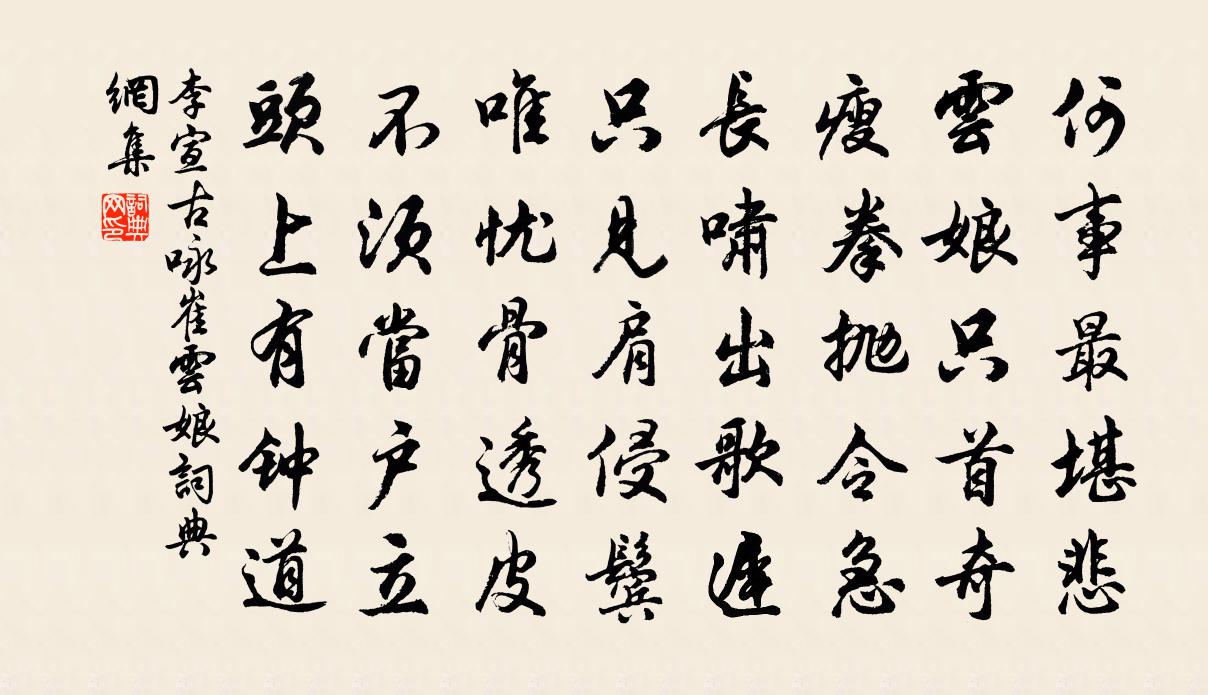 何事最堪悲
雲娘只首奇
瘦拳抛令急
長嘯出歌遲
只見肩侵鬓
唯忧骨透皮
不須當户立
頭上有钟道
李宣古咏崔雲娘詞典
網集
詞典
网印